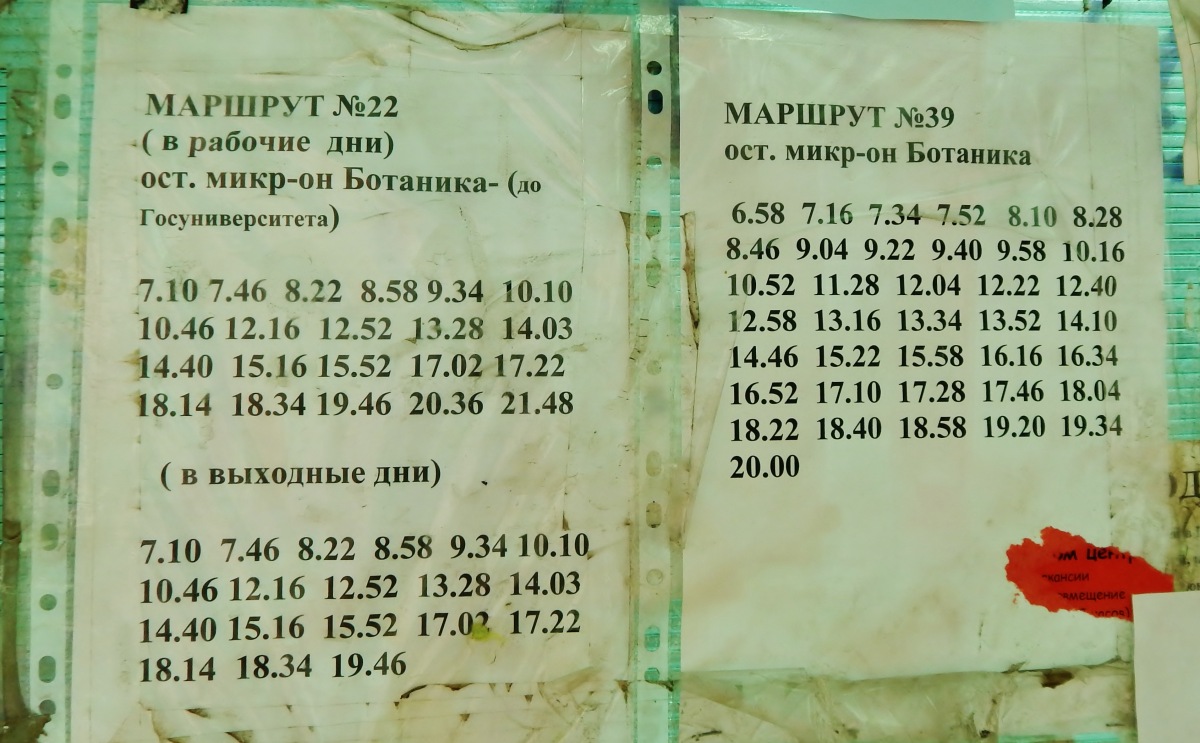 МАРШРУТ №22
( в рабочие дни)
ост. микр-он Ботаника- (до
Госуниверситета)
7.10 7.46 8.22 8.58 9.34 10.10
10.46 12.16 12.52 13.28 14.03
14.40 15.16 15.52 17.02 17.22
18.14 18.34 19.46 20.36 21.48
( в выходные дни)
7.10 7.46 8.22 8.58 9.34 10.10
10.46 12.16 12.52 13.28 14.03
14.40 15.16 15.52 17.02 17.22
18.14 18.34 19.46
МАРШРУТ №39
ост. микр-он Ботаника
6.58 7.16 7.34 7.52 8.10 8.28
8.46 9.04 9.22 9.40 9.58 10.16
10.52 11.28 12.04 12.22 12.40
12.58 13.16 13.34 13.52 14.10
14.46 15.22 15.58 16.16 16.34
16.52 17.10 17.28 17.46 18.04
18.22 18.40 18.58 19.20 19.34
20.00